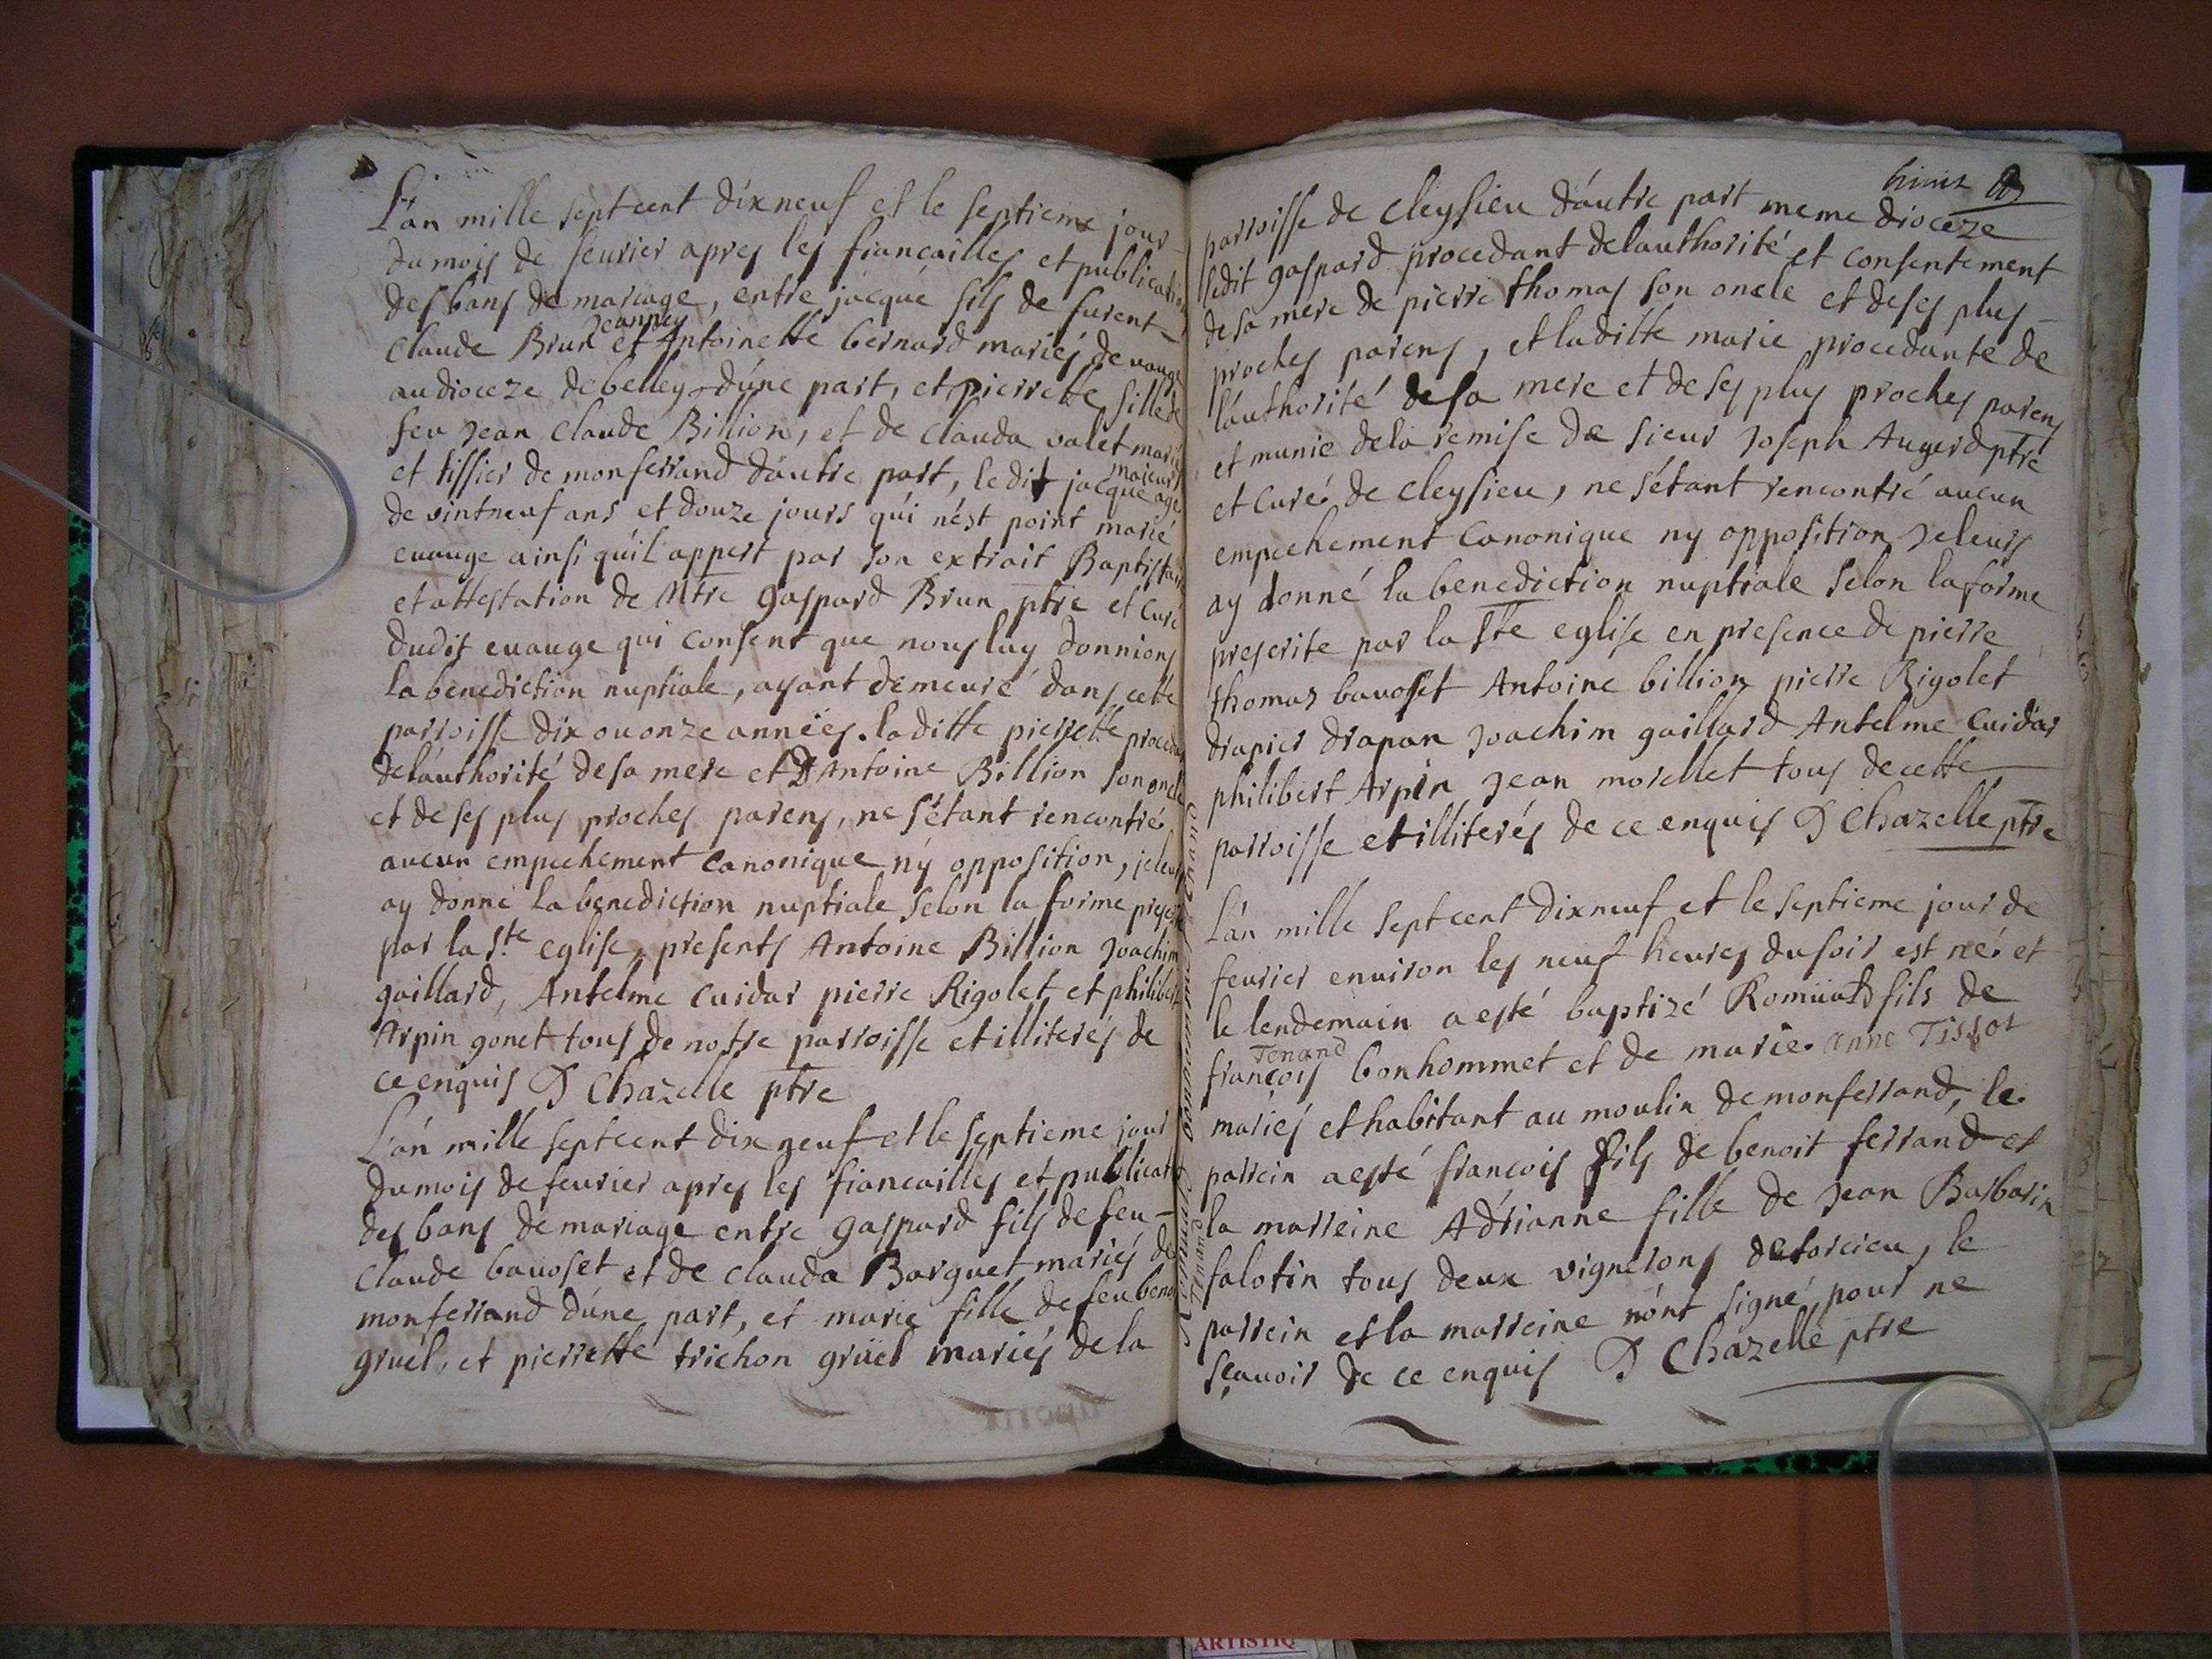 L'an mille sept cent dix neuf et le septieme jour
du mois de feurier apres les fiancailles et publication
des bans de mariage, entre jacque fils de furent
Jeanney
Claude Brun et Antoinette bernard mariés de
au dioceze de belley d'une part, et pierrette fille de
feu Jean Claude Billion, et de clauda valet
et tissier de monferrand d'autre part, le dit jacque majeur age
de vintneuf ans et douze jours qui n'est point marié
euauge ainsi qu'il appert par son extrait
et attestation de Mtre gaspard Brun ptre et Curé
dudit euauge qui consent que nous luy donnions
la benediction nuptiale, ayant demeuré dans cette
parroisse dix ou onze années. laditte pierrette
de l'authorité de sa mere et D Antoine Billion son oncle
et de ses plus proches parens, ne s'étant rencontré
aucun empechement canonique n'y opposition, je leurs
ay donné la benediction nuptiale selon la forme
par la Ste eglise, presents Antoine Billion Joachim
gaillard, Antelme Cuidar pierre Rigolet et philibert
Arpin gonet tous de notre parroisse et illiterés de
ce enquis D Chazelle ptre
L'an mille sept cent dix neuf et le septieme jour
du mois de feurier apres les fiancailles et
des bans de mariage entre gaspard fils de feu
Claude bauoset et de clauda Barguet mariés de
monferrand d'une part, et marie fille de feu
gruel, et pierrette trichon gruel mariés de la
parroisse de Cleysieu d'autre part meme dioceze
ledit gaspard procedant de lauthorité et consentement
de sa mere de pierre thomas son oncle et de ses plus
proches parens, et laditte marie procedante de
l'authorité de sa mere et de ses plus proches parens
et munie de la remise de sieur Joseph Augerd ptre
et Curé de Cleysieu, ne s'étant rencontré aucun
empechement canonique ny opposition je leurs
ay donné la benediction nuptiale selon la forme
prescrite par la Ste eglise en presence de pierre
thomas bauoset Antoine billion pierre Rigolet
drapier drapan Joachim gaillard Antelme Cuidar
philibert Arpin Jean morellet tous de cette
parroisse et illiterés de ce enquis D Chazelle ptre
L'an mille sept cent dix neuf et le septieme jour de
feurier enuiron les neuf heures du soir est né et
le lendemain a esté baptizé Romuald fils de
Tenand
françois bonhommet et de marie anne Tissot
mariés et habitant au moulin de monferrand, le
parrein a esté francois fils de benoit ferrand et
la marreine Adrianne fille de Jean Barbarin
falotin tous deux vignerons de torcieu, le
parrein et la marreine n'ont signé pour ne
sçauoir de ce enquis D Chazelle ptre
Romuald bonhommet Tenand
Tenand
ARTISTIQ